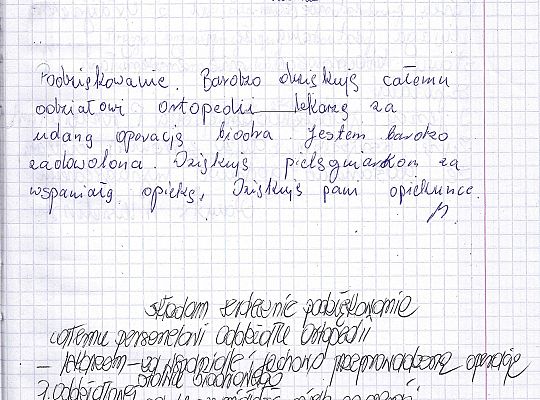 Podziękowanie. Bardzo dziękuję całemu
oddziałowi ortopedii lekarzą za
udaną operację biodra. Jestem bardzo
zadowolona. Dziękuję pielęgniarkom za
wspaniałą opiekę, Dziękuję pani opiekunce.
składam serdecznie podziękowanie
całemu personelowi oddziału ortopedii
- lekarzom - za i fachowo przeprowadzoną operację
stawu biodrowego